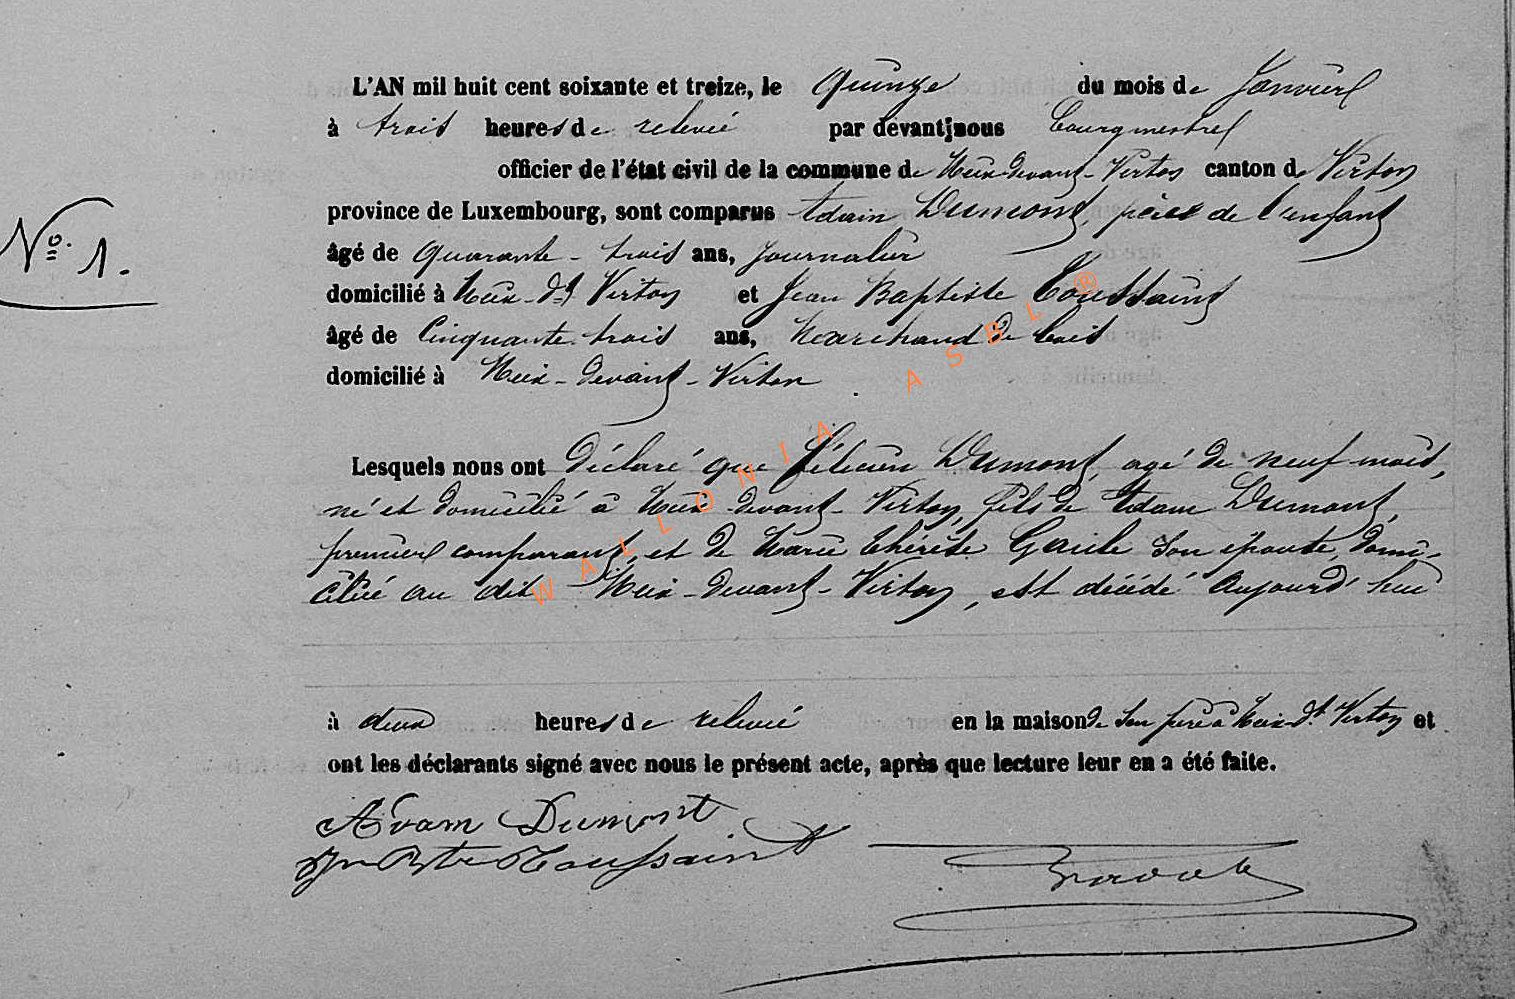 L'AN mil huit cent soixante et treize, le Quinze du mois de Janvier
à trois heures de relevée par devant nous Bourgmestre
officier de l'état civil de la commune de Meix-devant-Virton canton de Virton
province de Luxembourg, sont comparus Adam Dumont, père de l'enfant
N.º 1.
âgé de quarante-trois ans, Journalier
domicilié à Meix-dt Virton et Jean Baptiste Toussaint
âgé de Cinquante trois ans, Marchand de bois
domicilié à Meix-devant-Virton
Lesquels nous ont déclaré que Félicien Dumont, agé de neuf mois,
né et domicilié à Meix-devant-Virton, fils de Adam Dumont,
premier comparant, et de Marie Thérèse son épouse, domi-
cilié au dit Meix-devant-Virton, est décédé aujourd'hui
à deux heures de relevée en la maison de son père à Meix-dt Virton et
ont les déclarants signé avec nous le présent acte, après que lecture leur en a été faite.
Adam Dumont
Jn Bte Toussaint
WALLONIA ASBL ®